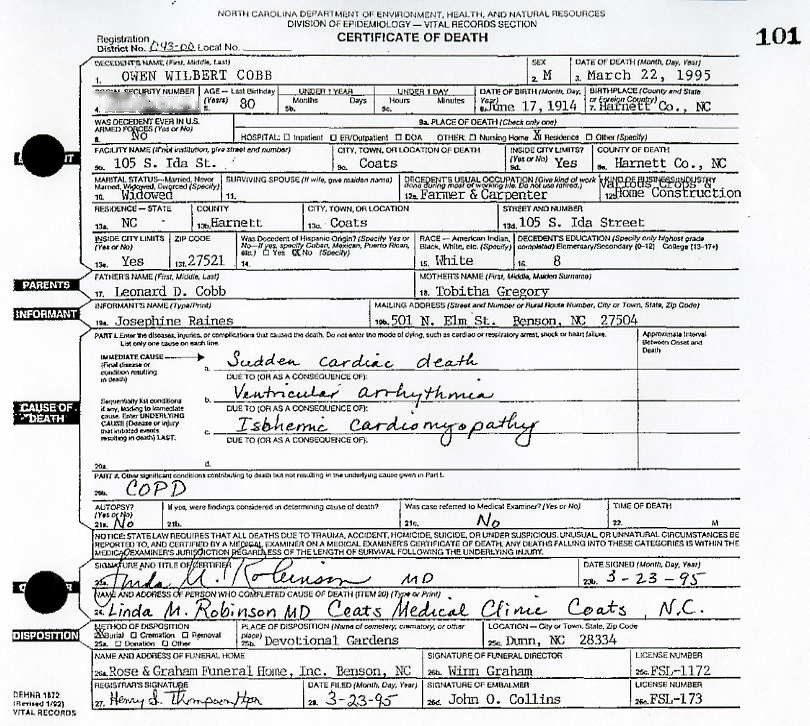 NORTH CAROLINA DEPARTMENT OF ENVIRONMENT, HEALTH, AND NATURAL RESOURCES
DIVISION OF EPIDEMIOLOGY — VITAL RECORDS SECTION
CERTIFICATE OF DEATH
101
Registration
District No. 043-00 Local No.
DECEDENT'S NAME (First, Middle, Last)
1. OWEN WILBERT COBB
SEX
2. M
DATE OF DEATH (Month, Day, Year)
3. March 22, 1995
SOCIAL SECURITY NUMBER
4.
AGE — Last Birthday
(Years)
5. 80
UNDER 1 YEAR
Months Days
5b.
UNDER 1 DAY
Hours Minutes
5c.
DATE OF BIRTH (Month, Day, Year)
6. June 17, 1914
BIRTHPLACE (County and State or Foreign Country)
7. Harnett Co., NC
WAS DECEDENT EVER IN U.S.
ARMED FORCES (Yes or No)
8. NO
9a. PLACE OF DEATH (Check only one)
HOSPITAL: ☐ Inpatient ☐ ER/Outpatient ☐ DOA OTHER: ☐ Nursing Home X Residence ☐ Other (Specify)
FACILITY NAME (If not institution, give street and number)
9b. 105 S. Ida St.
CITY, TOWN, OR LOCATION OF DEATH
9c. Coats
INSIDE CITY LIMITS?
(Yes or No)
9d. Yes
COUNTY OF DEATH
9e. Harnett Co., NC
MARITAL STATUS—Married, Never
Married, Widowed, Divorced (Specify)
10. Widowed
SURVIVING SPOUSE (If wife, give maiden name)
11.
DECEDENT'S USUAL OCCUPATION (Give kind of work
done during most of working life. Do not use retired.)
12a. Farmer & Carpenter
KIND OF BUSINESS/INDUSTRY
Various Crops &
12b. Home Construction
RESIDENCE — STATE
13a. NC
COUNTY
13b. Harnett
CITY, TOWN, OR LOCATION
13c. Coats
STREET AND NUMBER
13d. 105 S. Ida Street
INSIDE CITY LIMITS
(Yes or No)
13e. Yes
ZIP CODE
13f. 27521
Was Decedent of Hispanic Origin? (Specify Yes or
No—If yes, specify Cuban, Mexican, Puerto Rican,
etc.) ☐ Yes X No (Specify)
14.
RACE — American Indian,
Black, White, etc. (Specify)
15. White
DECEDENT'S EDUCATION (Specify only highest grade
completed) Elementary/Secondary (0-12) College (13-17+)
16. 8
PARENTS
FATHER'S NAME (First, Middle, Last)
17. Leonard D. Cobb
MOTHER'S NAME (First, Middle, Maiden Surname)
18. Tobitha Gregory
INFORMANT
INFORMANT'S NAME (Type/Print)
19a. Josephine Raines
MAILING ADDRESS (Street and Number or Rural Route Number, City or Town, State, Zip Code)
19b. 501 N. Elm St. Benson, NC 27504
PART I. Enter the diseases, injuries, or complications that caused the death. Do not enter the mode of dying, such as cardiac or respiratory arrest, shock or heart failure.
List only one cause on each line.
Approximate Interval
Between Onset and
Death
IMMEDIATE CAUSE
(Final disease or
condition resulting
in death)
a. Sudden cardiac death
DUE TO (OR AS A CONSEQUENCE OF):
CAUSE OF
DEATH
Sequentially list conditions
if any, leading to immediate
cause. Enter UNDERLYING
CAUSE (Disease or injury
that initiated events
resulting in death) LAST.
b. Ventricular arrhythmia
DUE TO (OR AS A CONSEQUENCE OF):
c. Isbhemic cardiomyopathy
DUE TO (OR AS A CONSEQUENCE OF):
20a. d.
PART II. Other significant conditions contributing to death but not resulting in the underlying cause given in Part I.
20b. COPD
AUTOPSY?
(Yes or No)
21a. No
If yes, were findings considered in determining cause of death?
21b.
Was case referred to Medical Examiner? (Yes or No)
21c. No
TIME OF DEATH
22. M
NOTICE: STATE LAW REQUIRES THAT ALL DEATHS DUE TO TRAUMA, ACCIDENT, HOMICIDE, SUICIDE, OR UNDER SUSPICIOUS, UNUSUAL, OR UNNATURAL CIRCUMSTANCES BE
REPORTED TO, AND CERTIFIED BY A MEDICAL EXAMINER ON A MEDICAL EXAMINER'S CERTIFICATE OF DEATH. ANY DEATHS FALLING INTO THESE CATEGORIES IS WITHIN THE
MEDICAL EXAMINER'S JURISDICTION REGARDLESS OF THE LENGTH OF SURVIVAL FOLLOWING THE UNDERLYING INJURY.
SIGNATURE AND TITLE OF CERTIFIER
23a. Linda M. Robinson MD
DATE SIGNED (Month, Day, Year)
23b. 3-23-95
NAME AND ADDRESS OF PERSON WHO COMPLETED CAUSE OF DEATH (ITEM 20) (Type or Print)
24. Linda M. Robinson MD Coats Medical Clinic Coats, N.C.
DISPOSITION
METHOD OF DISPOSITION
X Burial ☐ Cremation ☐ Removal
25a. ☐ Donation ☐ Other
PLACE OF DISPOSITION (Name of cemetery, crematory, or other
place)
25b. Devotional Gardens
LOCATION — City or Town, State, Zip Code
25c. Dunn, NC 28334
NAME AND ADDRESS OF FUNERAL HOME
26a. Rose & Graham Funeral Home, Inc. Benson, NC
SIGNATURE OF FUNERAL DIRECTOR
26b. Winn Graham
LICENSE NUMBER
26c. FSL-1172
REGISTRAR'S SIGNATURE
27. Henry S. Thompson
DATE FILED (Month, Day, Year)
28. 3-23-95
SIGNATURE OF EMBALMER
26d. John O. Collins
LICENSE NUMBER
26e. FSL-173
DEHNR 1872
(Revised 1/92)
VITAL RECORDS